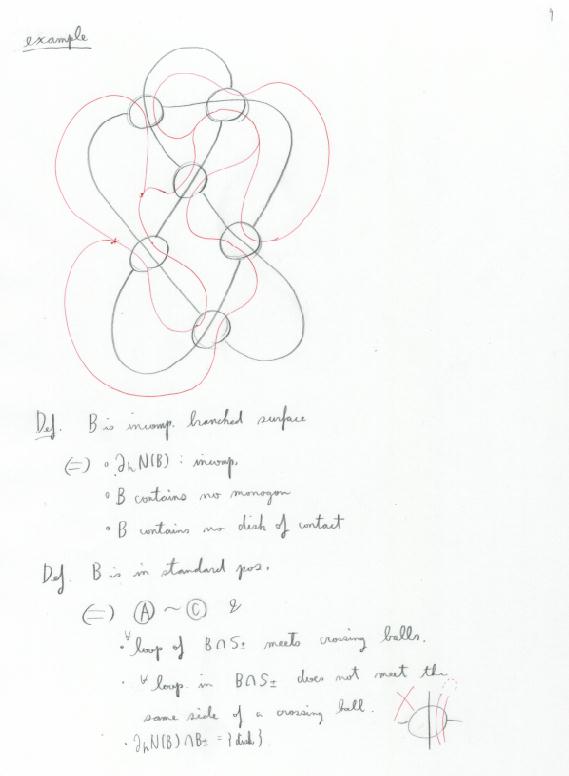 9
example
Def. B is incomp. branched surface
⟺ ∘ ∂hN(B) : incomp.
∘ B contains no monogon
∘ B contains no disk of contact
Def. B is in standard pos.
⟺ Ⓐ ~ Ⓒ &
・ ∀loop of B∩S± meets crossing balls.
・ ∀loop in B∩S± does not meet the
same side of a crossing ball.
・ ∂hN(B)∩B± = {disk}